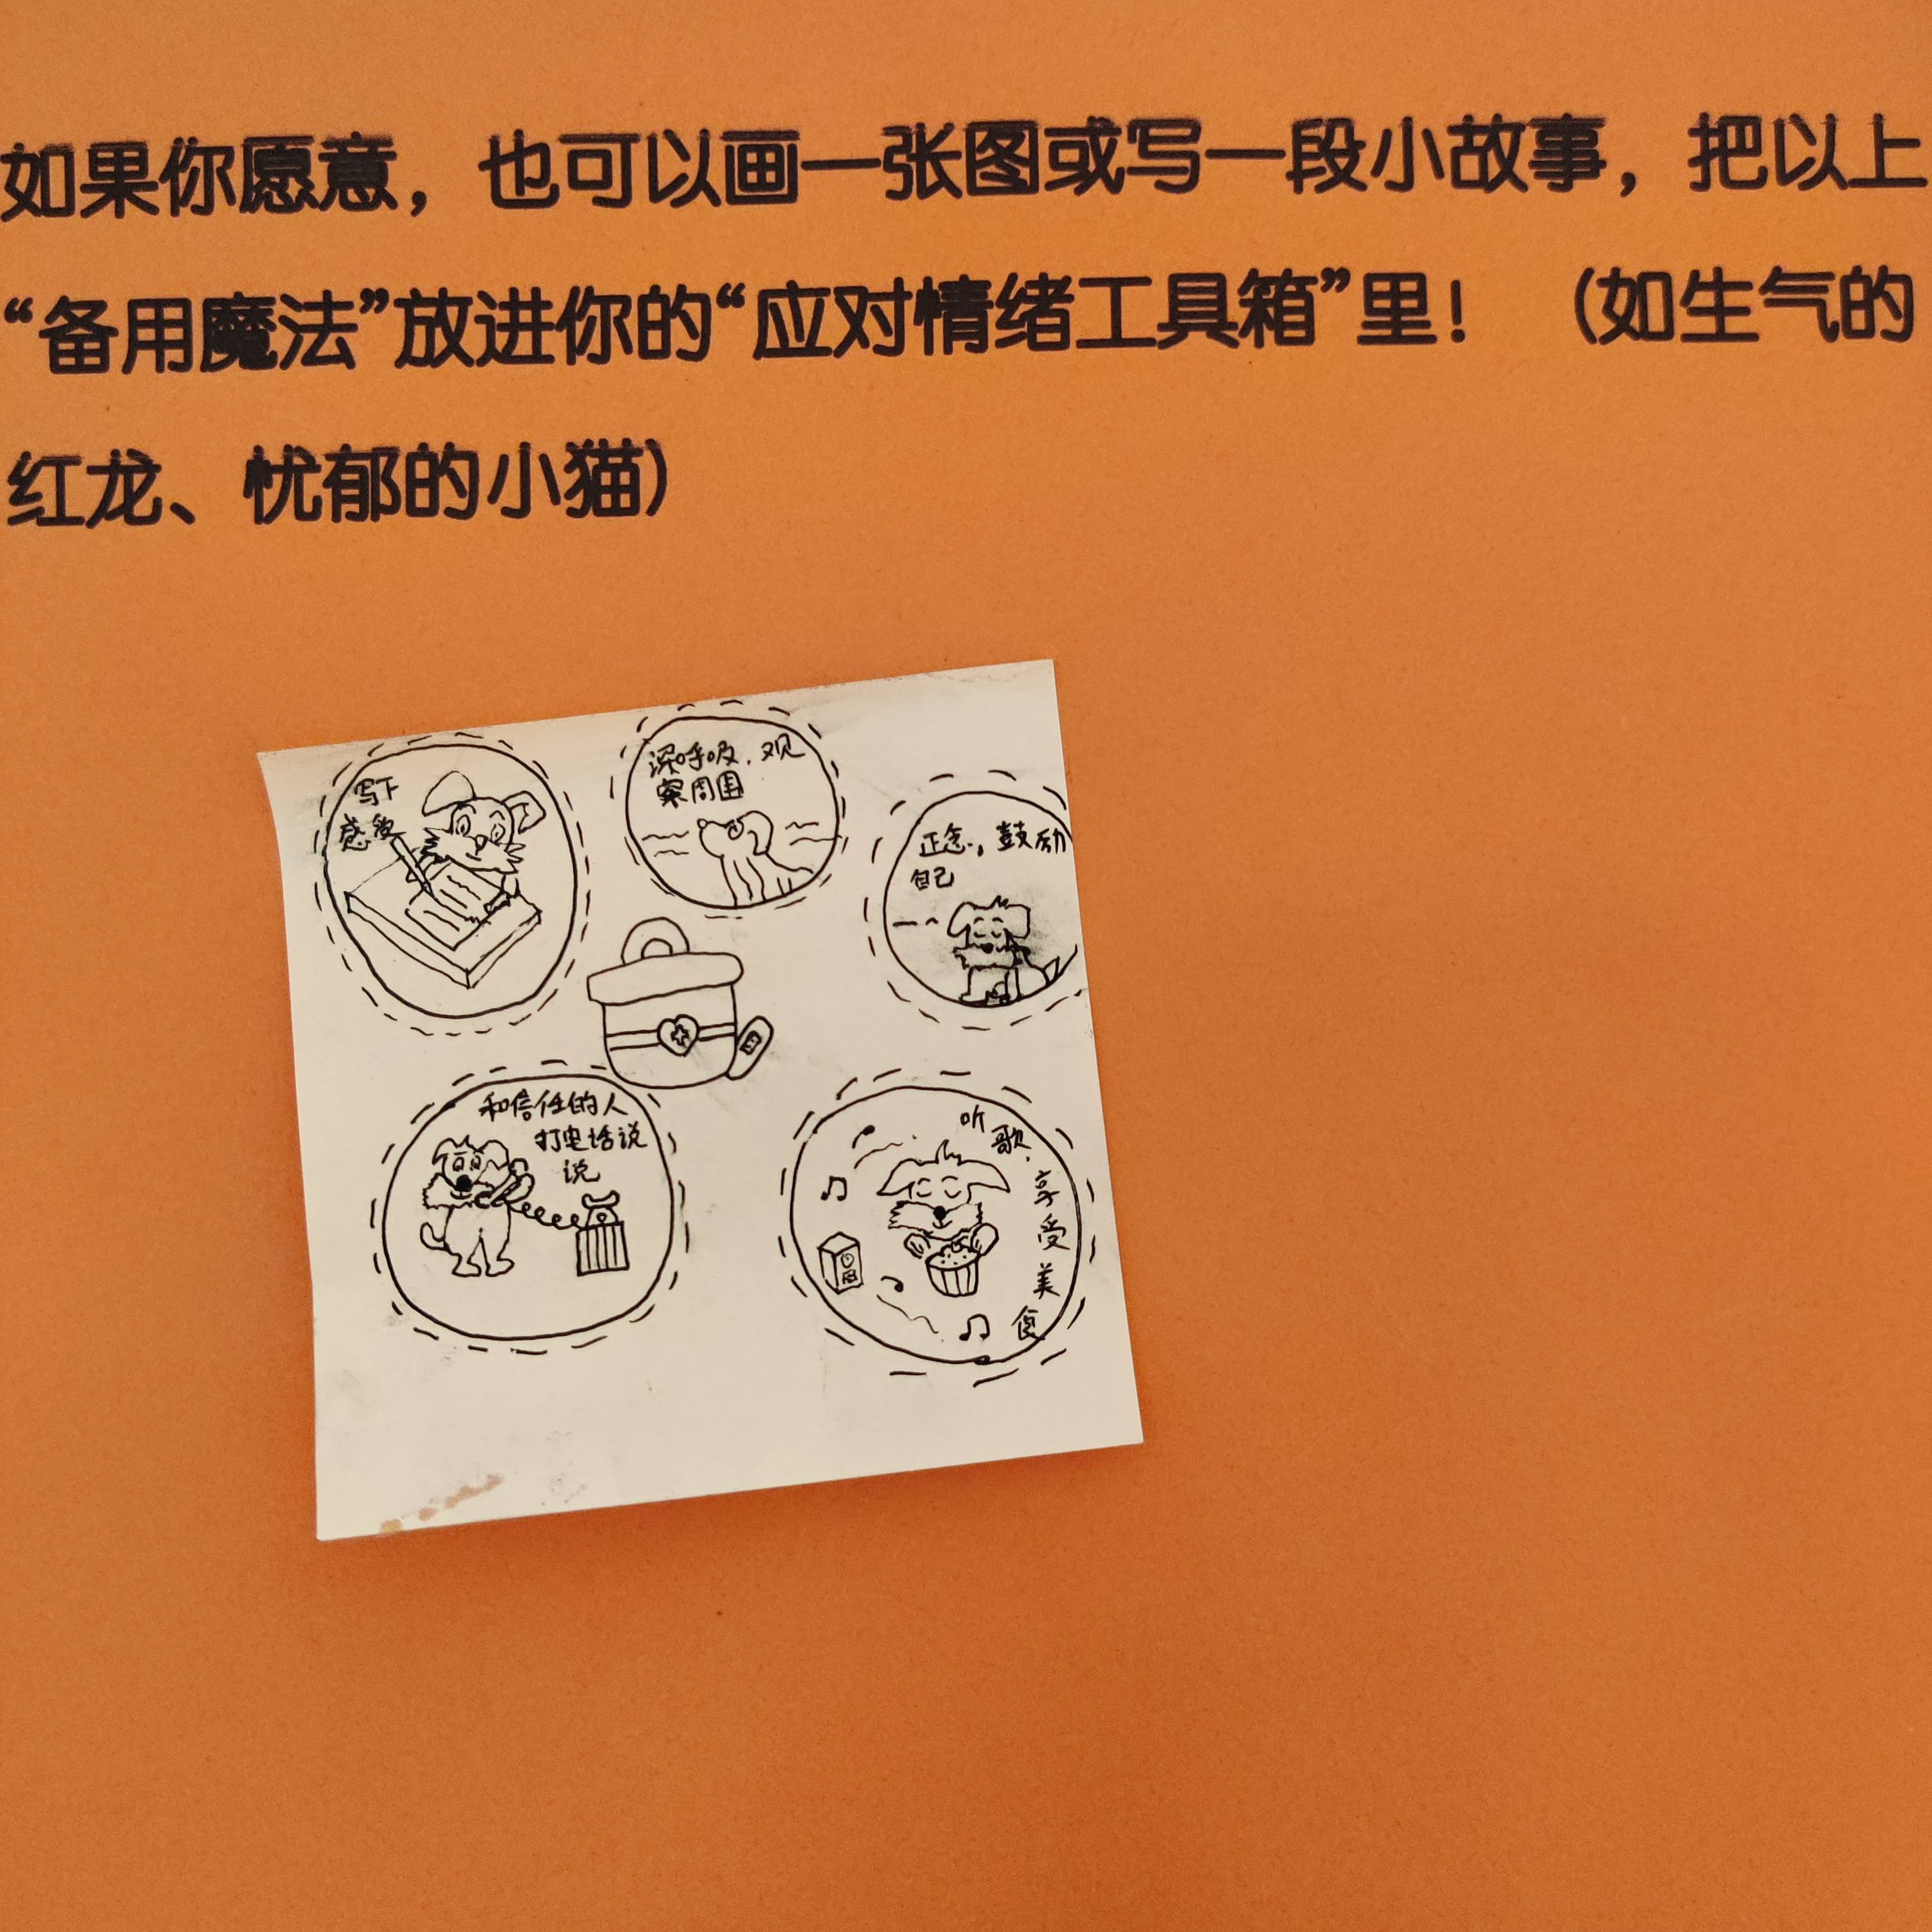 如果你愿意，也可以画一张图或写一段小故事，把以上
“备用魔法”放进你的“应对情绪工具箱”里！（如生气的
红龙、忧郁的小猫）
写下
感受
深呼吸，观
察周围
正念，鼓励
自己
和信任的人
打电话说
说
听歌，享受美食